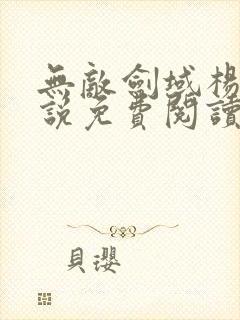 無敵劍域楊
說免費閱讀
貝瓔